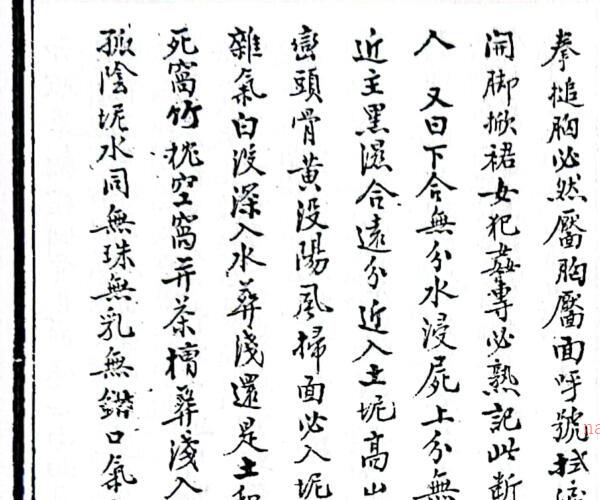 拳搥胸必然靨胸靨面呼號拭淚
開脚掀裙女犯姦專必熟記此断
人 又曰下合無分水浸屍上分無
近主黑濕合遠分近入土坭高山
巒頭骨黄没陽風掃面必入坭
雜氣白没深入水葬浅還是土和
死窩竹枕空窩并茶槽葬浅入
掀陰坭水同無珠無乳無鉗口氣
na